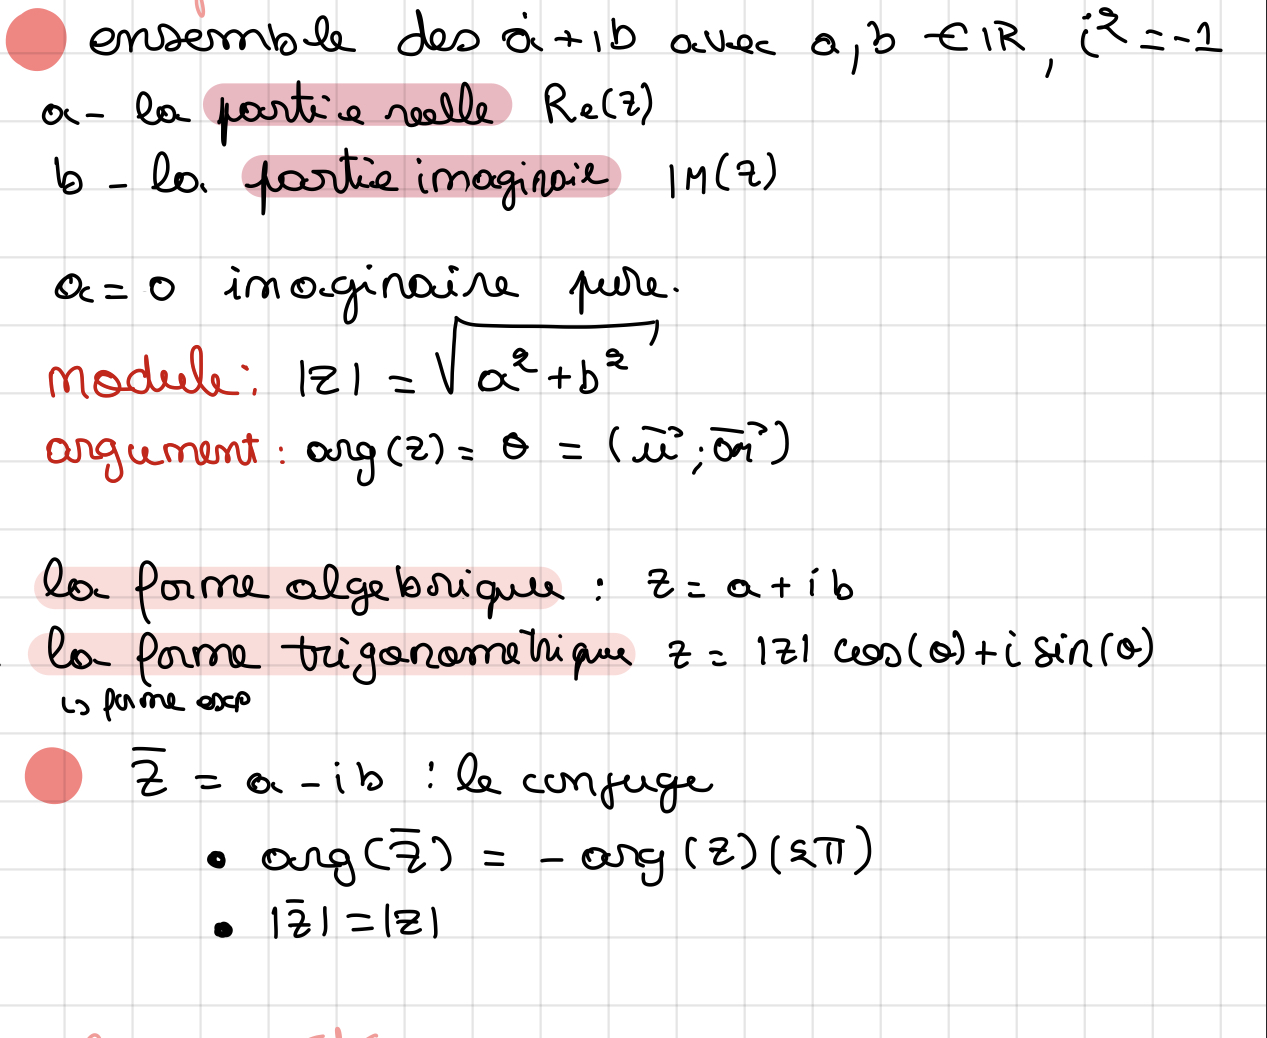 ensemble des a+ib avec a,b ∈ IR, i² = -1
a - la partie reelle Re(z)
b - la partie imaginaie IM(z)
a = 0 imaginaire pure.
module: |z| = √(a² + b²)
argument: arg(z) = θ = (u⃗ ; OM⃗)
la forme algebrique : z = a + ib
la forme trigonometrique z = |z| cos(θ) + i sin(θ)
↳ forme exp
z̅ = a - ib : le conjuge
• arg(z̅) = - arg(z) (2π)
• |z̅| = |z|